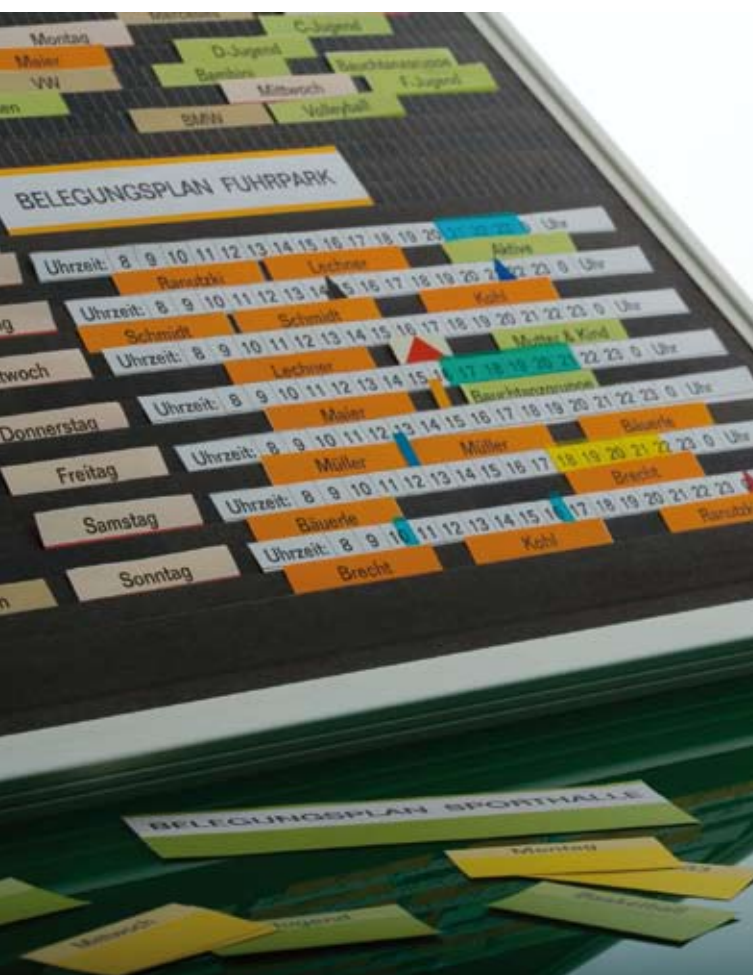 Mercedes
C-Jugend
Montag
D-Jugend
Maier
Bambini
Bauchtanzgruppe
VW
Mittwoch
F-Jugend
en
BMW
Volleyball
BELEGUNGSPLAN FUHRPARK
Uhrzeit: 8 9 10 11 12 13 14 15 16 17 18 19 20 21 22 23 0 Uhr
Ranutzki Lechner Aktive
Uhrzeit: 8 9 10 11 12 13 14 15 16 17 18 19 20 22 23 0 Uhr
g
Schmidt Schmidt Kohl
Uhrzeit: 8 9 10 11 12 13 14 15 16 17 18 19 20 21 22 23 0 Uhr
twoch
Lechner Mutter & Kind
Donnerstag
Uhrzeit: 8 9 10 11 12 13 14 15 16 17 18 19 20 21 22 23 0 Uhr
Maier Bauchtanzgruppe
Freitag
Uhrzeit: 8 9 10 11 12 13 14 15 16 17 18 19 20 21 22 23 0 Uhr
Müller Müller Bäuerle
Samstag
Uhrzeit: 8 9 10 11 12 13 14 15 16 17 18 19 20 21 22 23 0 Uhr
Bäuerle Brecht
Sonntag
Uhrzeit: 8 9 10 11 12 13 14 15 16 17 18 19 20 21 22 23
Brecht Kohl Ranutzk
n
BELEGUNGSPLAN SPORTHALLE
Montag
Mittwoch
Jugend
Basketball